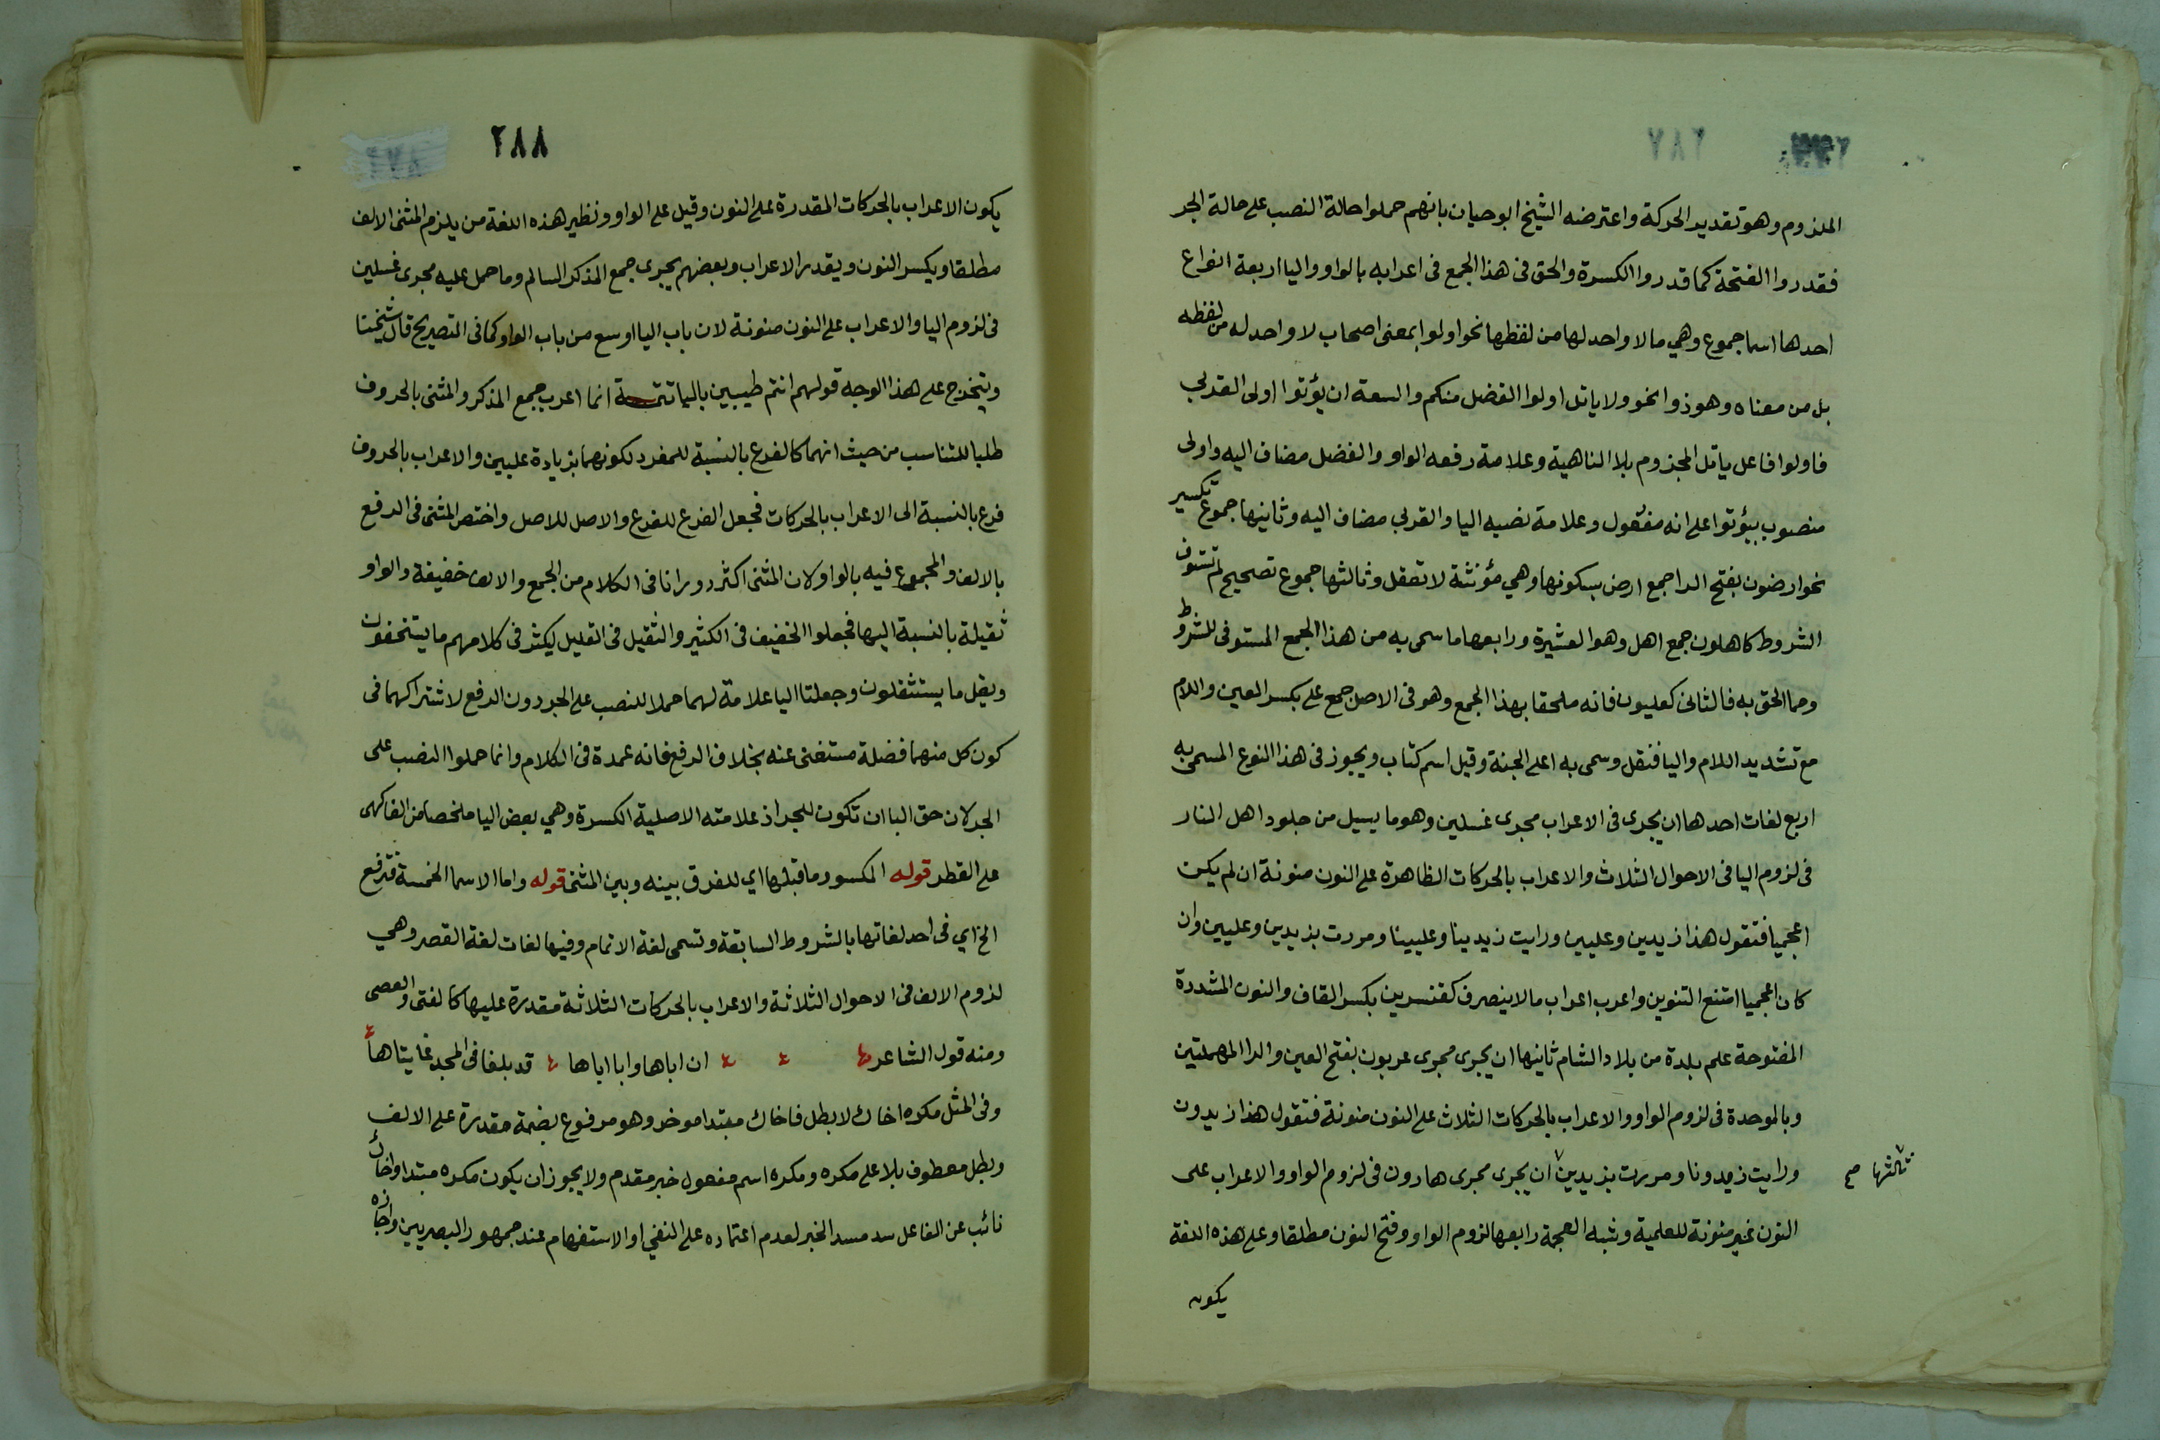 ٢٨٧
الملزوم وهو تقدير الحركة واعترضه الشيخ ابو حيان بانهم حملوا حالة النصب على حالة الجر
فقدروا الفتحة كما قدروا الكسرة والحق فى هذا الجمع فى اعرابه بالواو واليا اربعة انواع
احدها اسما جموع وهي مالا واحد لها من لفظها نحو اولوا بمعنى اصحاب لا واحد له من لفظه
بل من معناه وهو ذو نحو ولا ياتل اولوا الفضل منكم والسعة ان يؤتوا اولى القربى
فاولوا فاعل ياتل المجزوم بلا الناهية وعلامة رفعه الواو والفضل مضاف اليه واولى
منصوب بيؤتوا على انه مفعول وعلامة نصبه اليا والقربى مضاف اليه وثانيها جموع تكسير
نحو ارضون بفتح الرا جمع ارض بسكونها وهي مؤنثة لا تعقل وثالثها جموع تصحيح لم تستوف
الشروط كاهلون جمع اهل وهو العشيرة ورابعها ما سمى به من هذا الجمع المستوفى للشروط
ومما الحق به فالثانى كعليون فانه ملحقا بهذا الجمع وهو فى الاصل جمع على بكسر العين واللام
مع تشديد اللام واليا فنقل وسمى به اعلى الجنة وقيل اسم كتاب ويجوز فى هذا النوع المسمى به
اربع لغات احدها ان يجرى فى الاعراب مجرى غسلين وهو ما يسيل من جلود اهل النار
فى لزوم اليا فى الاحوال الثلاث والاعراب بالحركات الظاهرة على النون منونة ان لم يكن
اعجميا فتقول هذا زيدين وعليين ورايت زيدينا وعليينا ومررت بزيدين وعليين وان
كان اعجميا امتنع التنوين واعرب اعراب مالا ينصرف كقنسرين بكسر القاف والنون المشددة
المفتوحة علم بلدة من بلاد الشام ثانيها ان يجرى مجرى عربون بفتح العين والرا المهملتين
وبالموحدة فى لزوم الواو والاعراب بالحركات الثلاث على النون منونة فتقول هذا زيدون
ورايت زيدونا ومررت بزيدين ان يجرى مجرى هارون فى لزوم الواو والاعراب على
ثالثها صح
النون غير منونة للعلمية وشبه العجمة رابعها لزوم الواو وفتح النون مطلقا وعلى هذه اللغة
يكون
٢٨٨
يكون الاعراب بالحركات المقدرة على النون وقيل على الواو ونظير هذه اللغة من يلزم المثنى الالف
مطلقا ويكسر النون ويقدر الاعراب وبعضهم يجرى جمع المذكر السالم وما حمل عليه مجرى غسلين
فى لزوم اليا والاعراب على النون منونة لان باب اليا اوسع من باب الواو كما فى التصريح قال شيخنا
ويتخرج على هذا الوجه قولهم انتم طيبين باليا تتمة انما اعرب جمع المذكر والمثنى بالحروف
طلبا للتناسب من حيث انهما كالفرع بالنسبة للمفرد لكونهما بزيادة عليين والاعراب بالحروف
فرع بالنسبة الى الاعراب بالحركات فجعل الفرع للفرع والاصل للاصل واختص المثنى فى الرفع
بالالف والمجموع فيه بالواو لان المثنى اكثر دورانا فى الكلام من الجمع والالف خفيفة والواو
ثقيلة بالنسبة اليها فجعلوا الخفيف فى الكثير والثقيل فى القليل ليكثر فى كلامهم ما يستخفون
ويقل ما يستثقلون وجعلتا اليا علامة لهما حملا للنصب على الجر دون الرفع لاشتراكهما فى
كون كل منهما فضلة مستغنى عنه بخلاف الرفع فانه عمدة فى الكلام وانما حملوا النصب على
الجر لان حق اليا ان تكون للجر اذ علامته الاصلية الكسرة وهي بعض اليا ملخصا من الفاكهى
على القطر قوله المكسور ما قبلها اي للفرق بينه وبين المثنى قوله واما الاسما الخمسة فترفع
الخ اي فى احد لغاتها بالشروط السابقة وتسمى لغة الاتمام وفيها لغات لغة القصر وهي
لزوم الالف فى الاحوال الثلاثة والاعراب بالحركات الثلاثة مقدرة عليها كالفتى والعصى
ومنه قول الشاعر ان اباها وابا اباها قد بلغا فى المجد غايتاها
وفى المثل مكره اخاك لا بطل فاخاك مبتدا موخر وهو مرفوع بضمة مقدرة على الالف
وبطل معطوف بلا على مكره ومكره اسم مفعول خبر مقدم ولا يجوز ان يكون مكره مبتدا واخاك
نائب عن الفاعل سد مسد الخبر لعدم اعتماده على النفي او الاستفهام عند جمهور البصريين واجازه